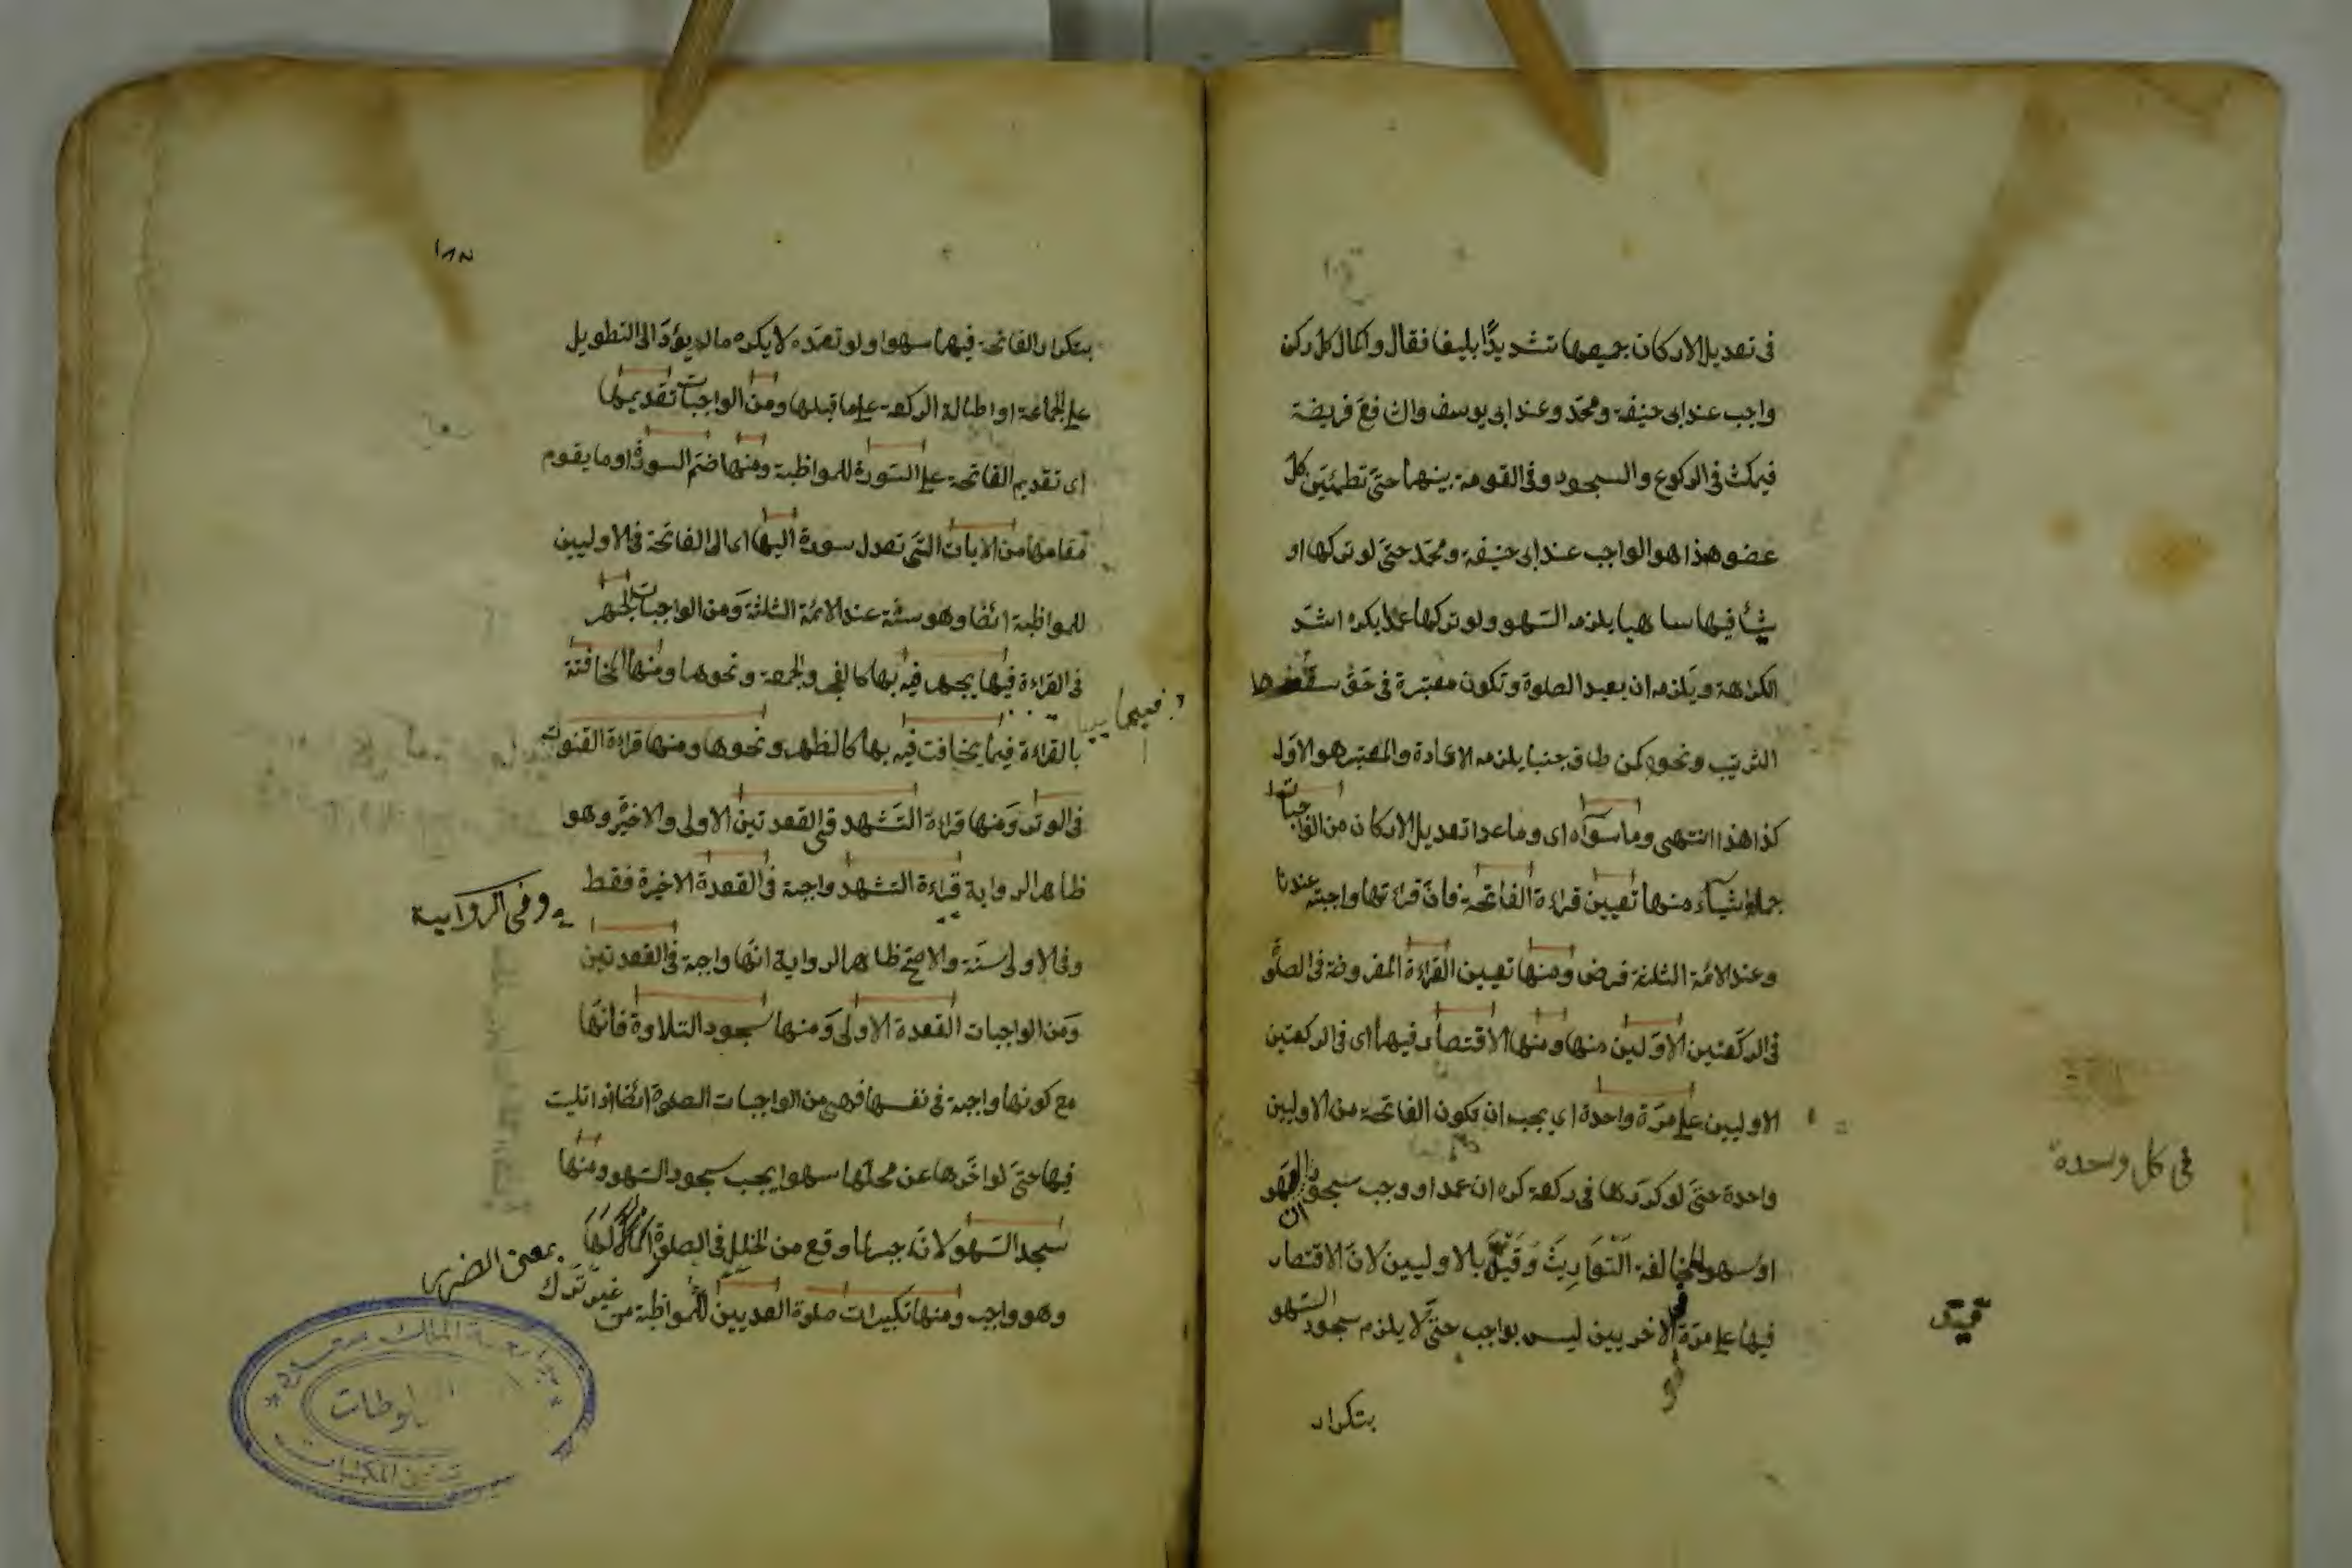 في تعديل الاركان جميعها تشديدًا بليغا فقال واكمال كل ركن
واجب عند ابي حنيفة ومحمّد وعند ابي يوسف والشافعي فريضة
فيمكث في الركوع والسجود وفي القومة بينهما حتّى تطمئن كل
عضو هذا هو الواجب عند ابي حنيفة ومحمّد حتى لو تركها او
شيأ فيها ساهيا يلزمه السّهو ولو تركها عمدا يكره اشدّ
الكراهة ويلزمه ان يعيد الصلوة وتكون معتبرة في حق سقوط
الترتيب ونحوه كمن طاف جنبا يلزمه الاعادة والمعتبر هو الاوّل
كذا هذا انتهى وما سواه اى وما عدا تعديل الاركان من الواجبات
جملة اشياء منها تعيين قراءة الفاتحة فانّ قراءتها واجبة عندنا
وعند الائمة الثلثة فرض ومنها تعيين القراءة المفروضة في الصلوة
في الركعتين الاوّلين منها ومنها الاقتصار فيهما اى في الركعتين
الاوليين على مرّة واحدة اي يجب ان تكون الفاتحة من الاوليين
في كل وحدة
واحدة حتّى لو كرّرها في ركعة كره ان عمدا ووجب سجود السهو
ان
او سهوا لمخالفة التّوارث وقيّد بالاوليين لانّ الاقتصار
قيد
فيها على مرّة الاخريين ليس بواجب حتّى لا يلزم سجود السّهو
بتكرار
١٨٢
بتكرار الفاتحة فيهما سهوا ولو تعمّده لا يكره مالم يؤدّ الى التطويل
على الجماعة او اطالة الركعة على ما قبلها ومن الواجبات تقديمها
اى تقديم الفاتحة على السّورة للمواظبة ومنها ضمّ السورة او ما يقوم
مقامها من الايات التّي تعدل سورة اليها اى الى الفاتحة في الاوليين
للمواظبة ايضا وهو سنّة عند الائمة الثلثة ومن الواجبات الجهر
في القراءة فيما يجهر فيه بها كالفجر والجمعة ونحوهما ومنها المخافتة
فيما
بالقراءة فيما يخافت فيه بها كالظهر ونحوها ومنها قراءة القنوت
في الوتر ومنها قراءة التّشهد في القعدتين الاولى والاخيرة وهو
ظاهر الرواية قراءة التشهد واجبة في القعدة الاخيرة فقط
وفي الرواية
وفي الاولى سنّة والاصحّ ظاهر الرواية انّها واجبة في القعدتين
ومن الواجبات القعدة الاولى ومنها سجود التلاوة فانّها
مع كونها واجبة في نفسها فهي من الواجبات الصلوة ايضا اذا تليت
فيها حتّى لو اخّرها عن محلّها سهوا يجب سجود السّهو ومنها
سجد السّهو لانّه جبر لما وقع من الخلل في الصلوة اكمالا لها
بمعنى الضرر
وهو واجب ومنها تكبيرات صلوة العيديين للمواظبة من غير ترك
جامعة الملك سعود
المكتبات